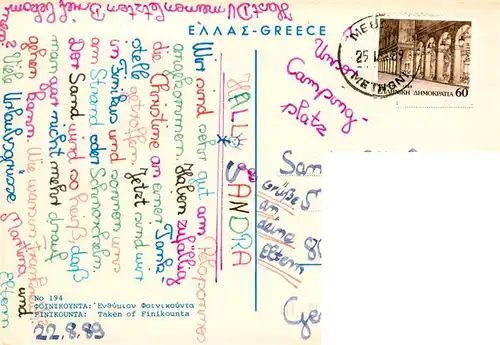 ΕΛΛΑΣ-GREECE
HALLO SANDRA
Wir sind sehr gut am Peloponnes
angekommen. Haben zufällig
die Christine an einer Tank-
stelle getroffen. Jetzt sind wir
in Finikus und sonnen uns
am Strand oder Schnorcheln.
Der Sand ist so heiß, daß
man gar nicht mehr drauf
gehen kann. Wie war's in Frankreich?
Viele Urlaubsgrüsse
Martina und
Eltern
Hast DU meinen letzten Brief bekommen?
Unser
Camping-
platz
25
ΜΕΘΩΝΗ
ΕΛΛΗΝΙΚΗ ΔΗΜΟΚΡΑΤΙΑ 60
San
Grüße
an
deine
Eltern
Ge
No 194
ΦΟΙΝΙΚΟΥΝΤΑ: Ἐνθύμιον Φοινικούντα
FINIKOUNTA: Taken of Finikounta
22.8.89